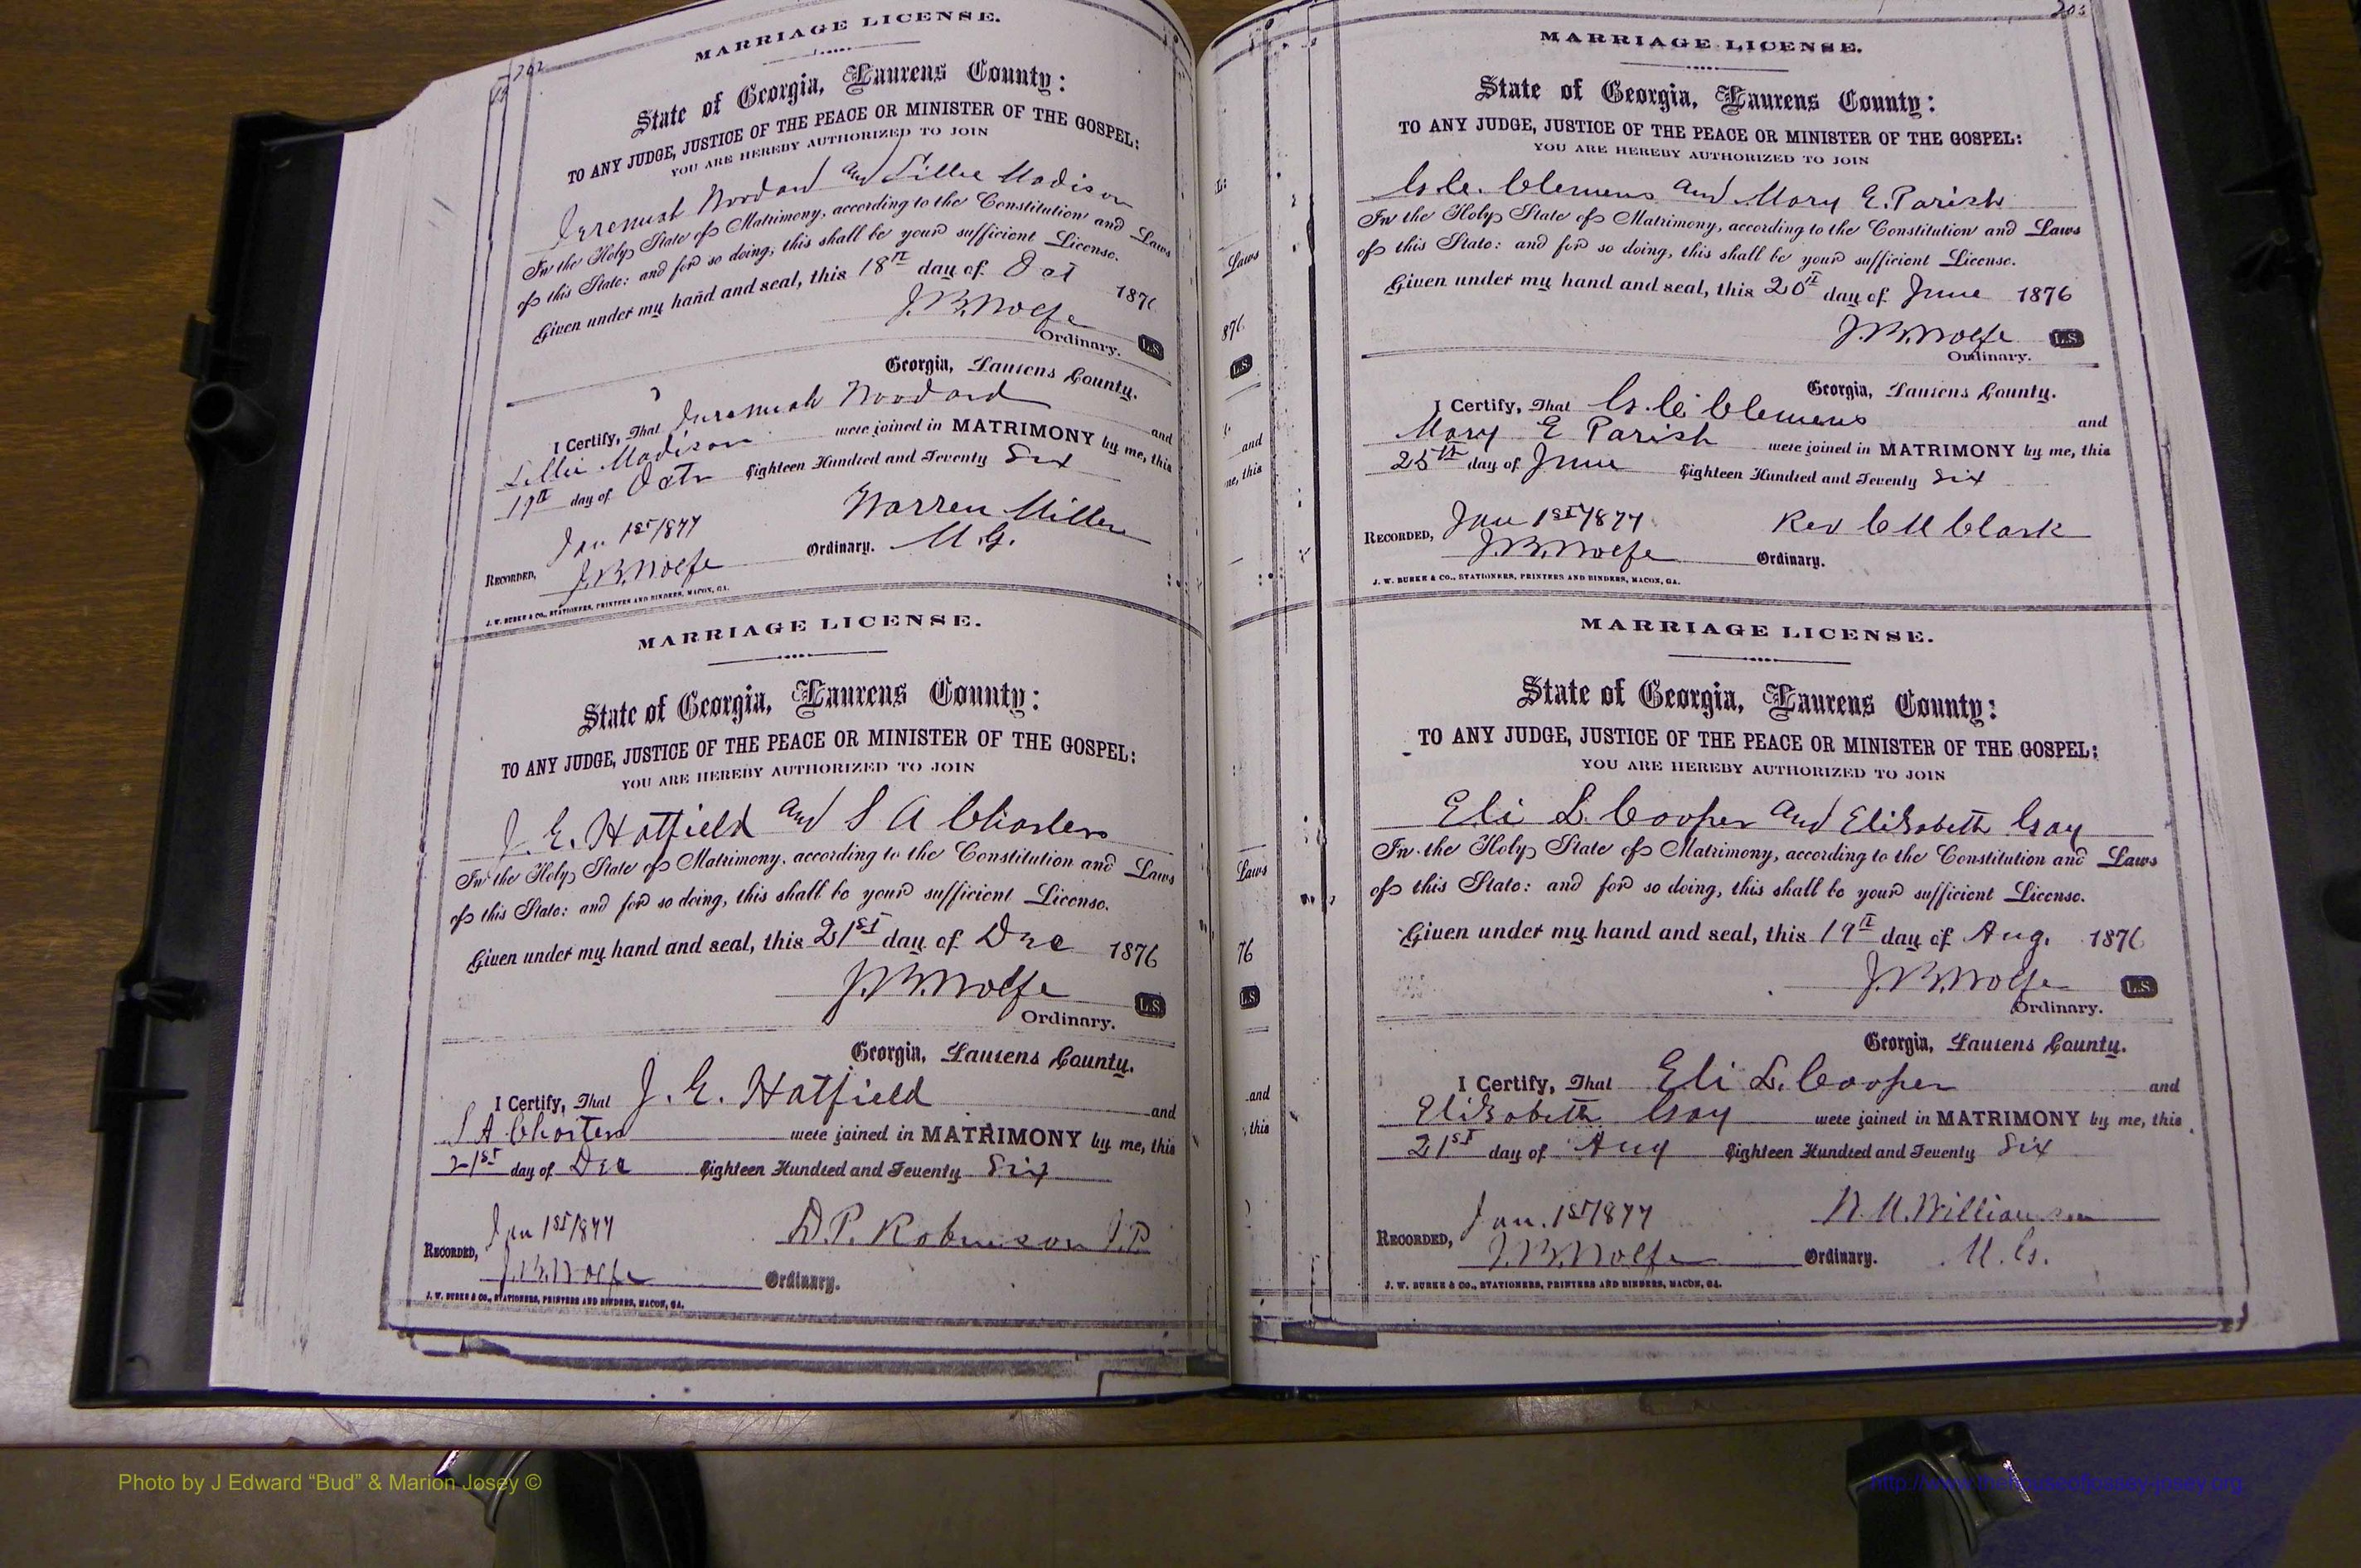 202
MARRIAGE LICENSE.
State of Georgia, Laurens County:
TO ANY JUDGE, JUSTICE OF THE PEACE OR MINISTER OF THE GOSPEL:
YOU ARE HEREBY AUTHORIZED TO JOIN
Jeremiah Woodard and Lillie Madison
In the Holy State of Matrimony, according to the Constitution and Laws
of this State: and for so doing, this shall be your sufficient License.
Given under my hand and seal, this 18th day of Oct 1876
J.B. Wolfe
Ordinary. L.S.
Georgia, Laurens County.
I Certify, That Jeremiah Woodard and
Lillie Madison were joined in MATRIMONY by me, this
19th day of Octr Eighteen Hundred and Seventy Six
Jan 1st/1877 Warren Miller
RECORDED, J.B. Wolfe Ordinary. M.G.
J. W. BURKE & CO., STATIONERS, PRINTERS AND BINDERS, MACON, GA.
MARRIAGE LICENSE.
State of Georgia, Laurens County:
TO ANY JUDGE, JUSTICE OF THE PEACE OR MINISTER OF THE GOSPEL:
YOU ARE HEREBY AUTHORIZED TO JOIN
J. E. Hatfield and S A
In the Holy State of Matrimony, according to the Constitution and Laws
of this State: and for so doing, this shall be your sufficient License.
Given under my hand and seal, this 21st day of Dec 1876
J.B. Wolfe L.S.
Ordinary.
Georgia, Laurens County.
I Certify, That J. E. Hatfield and
S A were joined in MATRIMONY by me, this
21st day of Dec Eighteen Hundred and Seventy Six
Jan 1st/1877 D.P. Robinson J.P.
RECORDED, J.B. Wolfe Ordinary.
J. W. BURKE & CO., STATIONERS, PRINTERS AND BINDERS, MACON, GA.
Laws
876
L.S.
and
me, this
Laws
76
L.S.
and
this
203
MARRIAGE LICENSE.
State of Georgia, Laurens County:
TO ANY JUDGE, JUSTICE OF THE PEACE OR MINISTER OF THE GOSPEL:
YOU ARE HEREBY AUTHORIZED TO JOIN
G.C. Clemens and Mary E. Parish
In the Holy State of Matrimony, according to the Constitution and Laws
of this State: and for so doing, this shall be your sufficient License.
Given under my hand and seal, this 20th day of June 1876
J.B. Wolfe L.S.
Ordinary.
Georgia, Laurens County.
I Certify, That G.C. Clemens and
Mary E Parish were joined in MATRIMONY by me, this
25th day of June Eighteen Hundred and Seventy Six
Jan 1st/1877 Rev C M Clark
RECORDED, J.B. Wolfe Ordinary.
J. W. BURKE & CO., STATIONERS, PRINTERS AND BINDERS, MACON, GA.
MARRIAGE LICENSE.
State of Georgia, Laurens County:
TO ANY JUDGE, JUSTICE OF THE PEACE OR MINISTER OF THE GOSPEL:
YOU ARE HEREBY AUTHORIZED TO JOIN
Eli L. Cooper and Elizabeth Gay
In the Holy State of Matrimony, according to the Constitution and Laws
of this State: and for so doing, this shall be your sufficient License.
Given under my hand and seal, this 19th day of Aug. 1876
J.B. Wolfe L.S.
Ordinary.
Georgia, Laurens County.
I Certify, That Eli L. Cooper and
Elizabeth Gay were joined in MATRIMONY by me, this
21st day of Aug Eighteen Hundred and Seventy Six
Jan. 1st/1877 N. M. Williamson
RECORDED, J.B. Wolfe Ordinary. M.G.
J. W. BURKE & CO., STATIONERS, PRINTERS AND BINDERS, MACON, GA.
Photo by J Edward “Bud” & Marion Josey ©